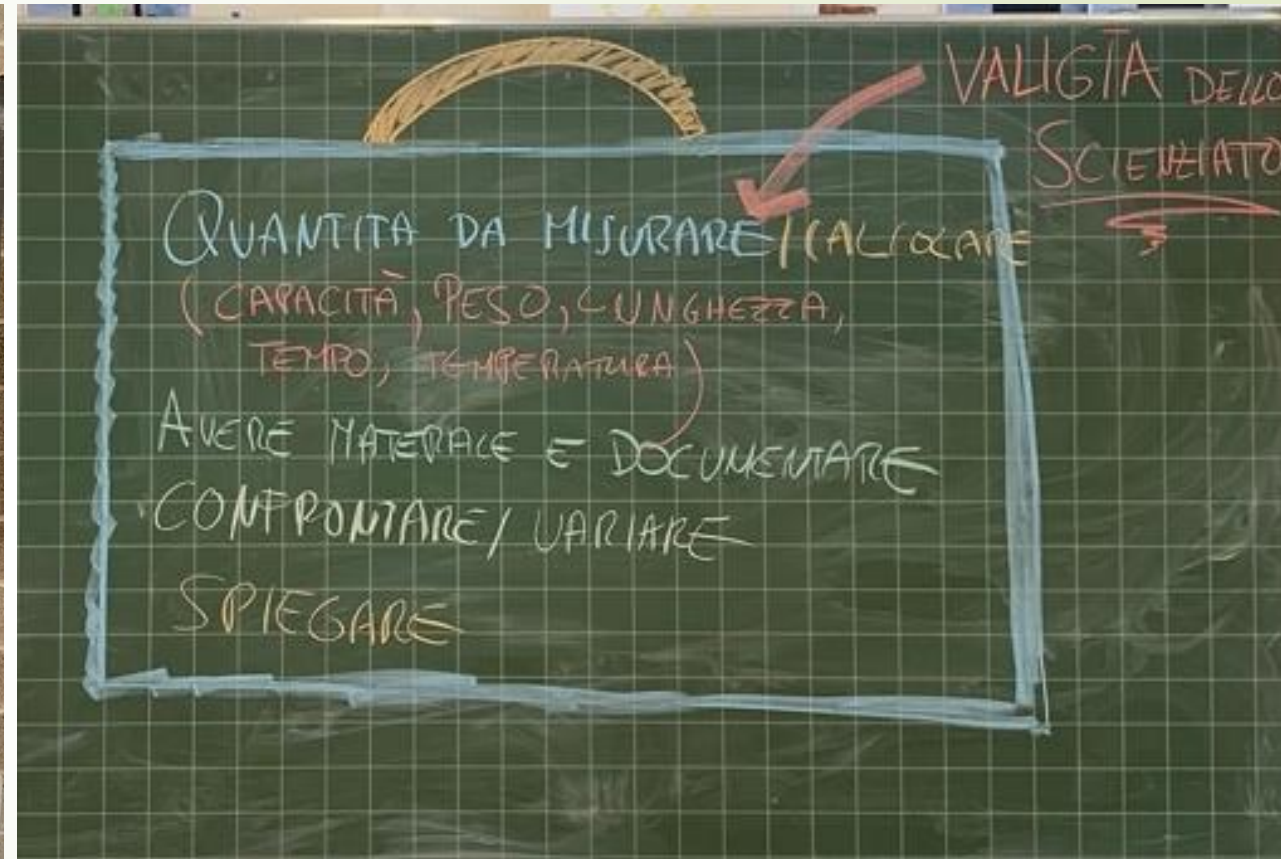 VALIGIA DELLO
SCIENZIATO
QUANTITA DA MISURARE/CALCOLARE
(CAPACITÀ, PESO, LUNGHEZZA,
TEMPO, TEMPERATURA)
AVERE MATERIALE E DOCUMENTARE
CONFRONTARE/VARIARE
SPIEGARE